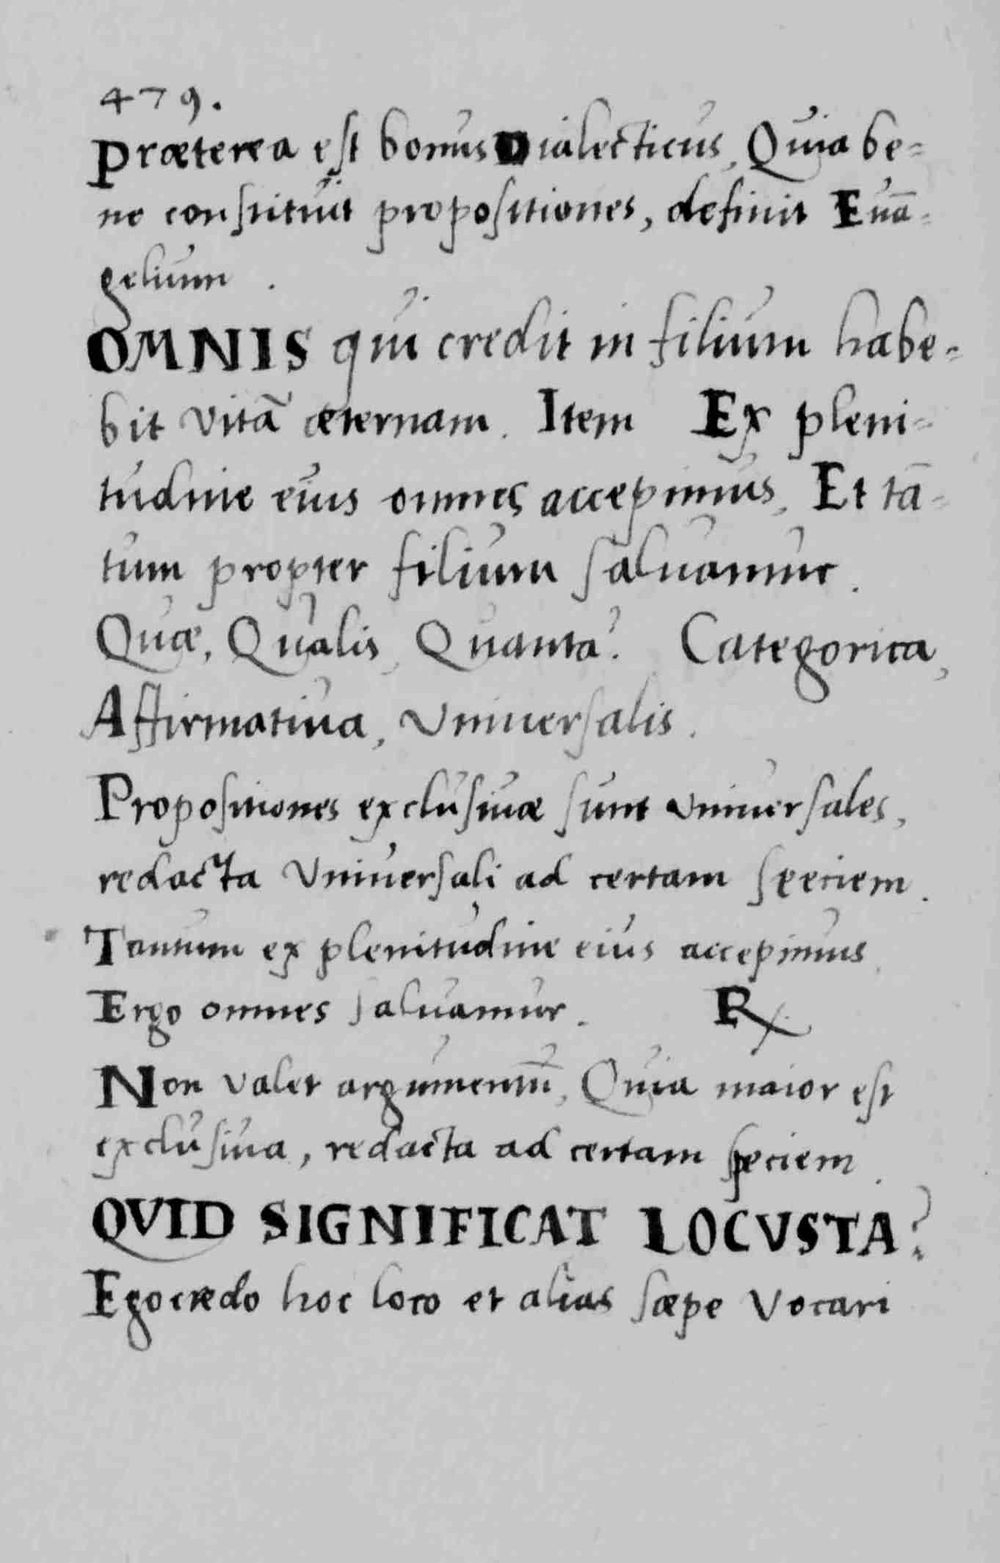 479.
Præterea est bonus Dialecticus, Quia be=
ne constituit propositiones, definit Euā=
gelium.
OMNIS qui credit in filium habe=
bit vitā æternam. Item Ex pleni=
tudine eius omnes accepimus, Et tā=
tum propter filium saluamur.
Quæ, Qualis, Quanta? Categorica,
Affirmatiua, Vniuersalis.
Propositiones exclusiuæ sunt vniuersales,
redacta Vniuersali ad certam speciem.
Tantum ex plenitudine eius accepimus,
Ergo omnes saluamur. ℞
Non valet argumentū, Quia maior est
exclusiua, redacta ad certam speciem.
QVID SIGNIFICAT LOCVSTA?
Ego credo hoc loco et alias sæpe vocari